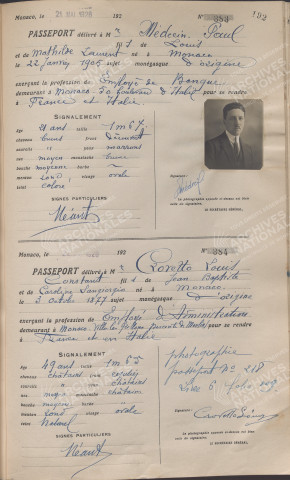 Monaco, le 25 MAI 1926 192 N° 383 192
PASSEPORT délivré à Mr Médecin Paul
fils de Louis
et de Mathilde Laurent né à Monaco
le 22 janvier 1905 sujet monégasque d'origine
exerçant la profession de Employé de Banque
demeurant à Monaco 20 boulevard d'Italie pour se rendre
à France et Italie
SIGNALEMENT
âge 21 ans taille 1m67
cheveux bruns front découvert
sourcils yeux marrons
nez moyen moustache brune
bouche moyenne barbe
menton rond visage ovale
teint coloré
SIGNES PARTICULIERS
Néant
Signature :
La photographie apposée ci-dessus est bien
celle du signataire.
LE SECRÉTAIRE GÉNÉRAL,
Monaco, le 192 N° 384
PASSEPORT délivré à Mr Crovetto Louis
Constant fils de Jean Baptiste
et de Caroline né à Monaco
le 3 Octobre 1877 sujet monégasque d'origine
exerçant la profession de Employé d'Administration
demeurant à Monaco Villa pour se rendre
à France et en Italie
SIGNALEMENT
âge 49 ans taille 1m65
cheveux châtains front
sourcils châtains yeux châtains
nez moyen moustache châtain
bouche moyenne barbe
menton rond visage ovale
teint naturel
SIGNES PARTICULIERS
Néant
photographie
passeport No 218
Livre 6 folio 109
Signature :
La photographie apposée ci-dessus est bien
celle du signataire.
LE SECRÉTAIRE GÉNÉRAL,